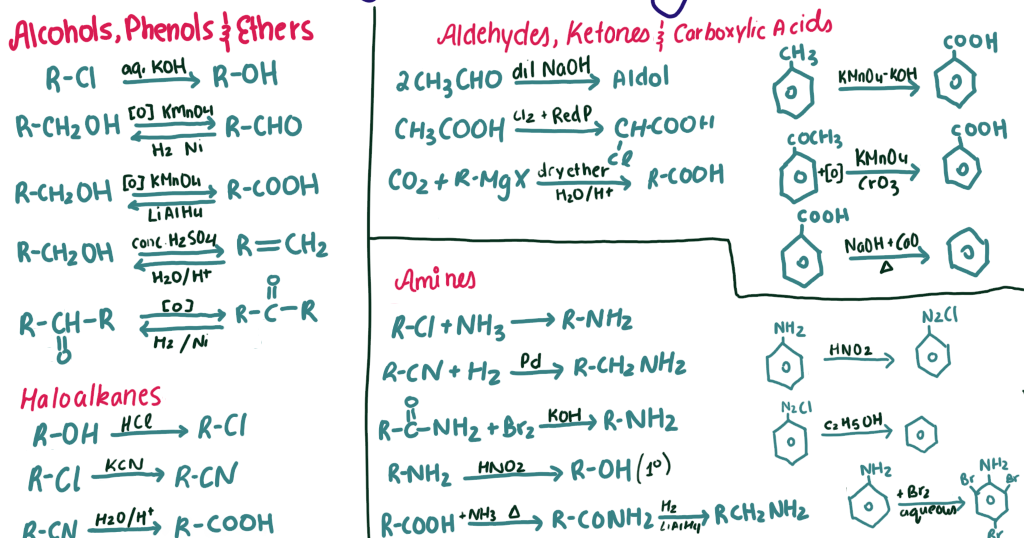 Alcohols, Phenols & Ethers
R-Cl aq. KOH R-OH
R-CH2OH [O] KMnO4 R-CHO
H2 Ni
R-CH2OH [O] KMnO4 R-COOH
LiAlH4
R-CH2OH conc. H2SO4 R=CH2
H2O/H+
O
R-CH-R [O] R-C-R
O H2/Ni
Haloalkanes
R-OH HCl R-Cl
R-Cl KCN R-CN
R-CN H2O/H+ R-COOH
Aldehydes, Ketones & Carboxylic Acids
2CH3CHO dil NaOH Aldol
CH3COOH Cl2 + Red P CH-COOH
Cl
CO2 + R-MgX dry ether R-COOH
H2O/H+
CH3 KMnO4-KOH COOH
COCH3 +[O] KMnO4 COOH
CrO3
COOH
NaOH + CaO
Δ
Amines
R-Cl + NH3 R-NH2
R-CN + H2 Pd R-CH2NH2
O
R-C-NH2 + Br2 KOH R-NH2
R-NH2 HNO2 R-OH (1°)
R-COOH +NH3 Δ R-CONH2 H2 RCH2NH2
LiAlH4
NH2 HNO2 N2Cl
N2Cl C2H5OH
NH2 + Br2 NH2
aqueous Br Br
Br